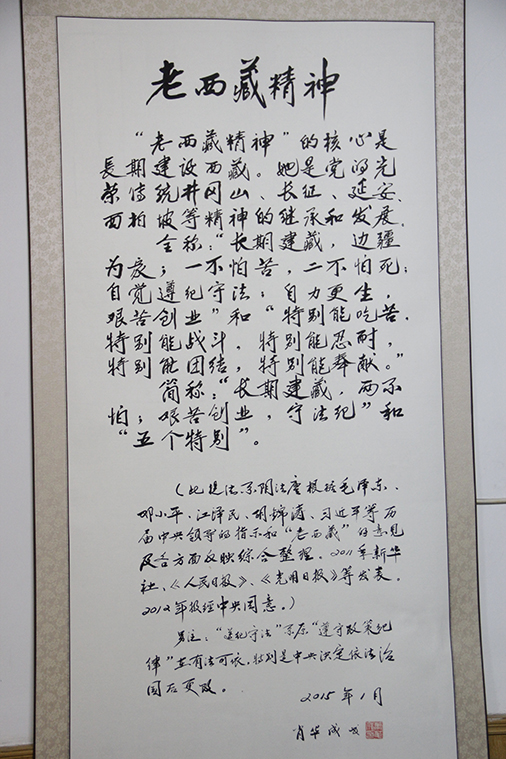 老西藏精神
“老西藏精神”的核心是
长期建设西藏。她是党的光
荣传统井冈山、长征、延安、
西柏坡等精神的继承和发展.
全称:“长期建藏,边疆
为家;一不怕苦,二不怕死;
自觉遵纪守法;自力更生,
艰苦创业”和“特别能吃苦.
特别能战斗,特别能忍耐,
特别能团结,特别能奉献。”
简称:“长期建藏,两不
怕;艰苦创业,守法纪”和
“五个特别”。
(此提法系阴法唐根据毛泽东、
邓小平、江泽民、胡锦涛、习近平等历
届中央领导的指示和“老西藏”的意见
及各方面反映综合整理.2011年新华
社、《人民日报》、《光明日报》等发表.
2012年报经中央同意。)
另注:“遵纪守法”系原“遵守政策纪
律”在有法可依,特别是中央决定依法治
国后更改。
2015年1月
肖华成